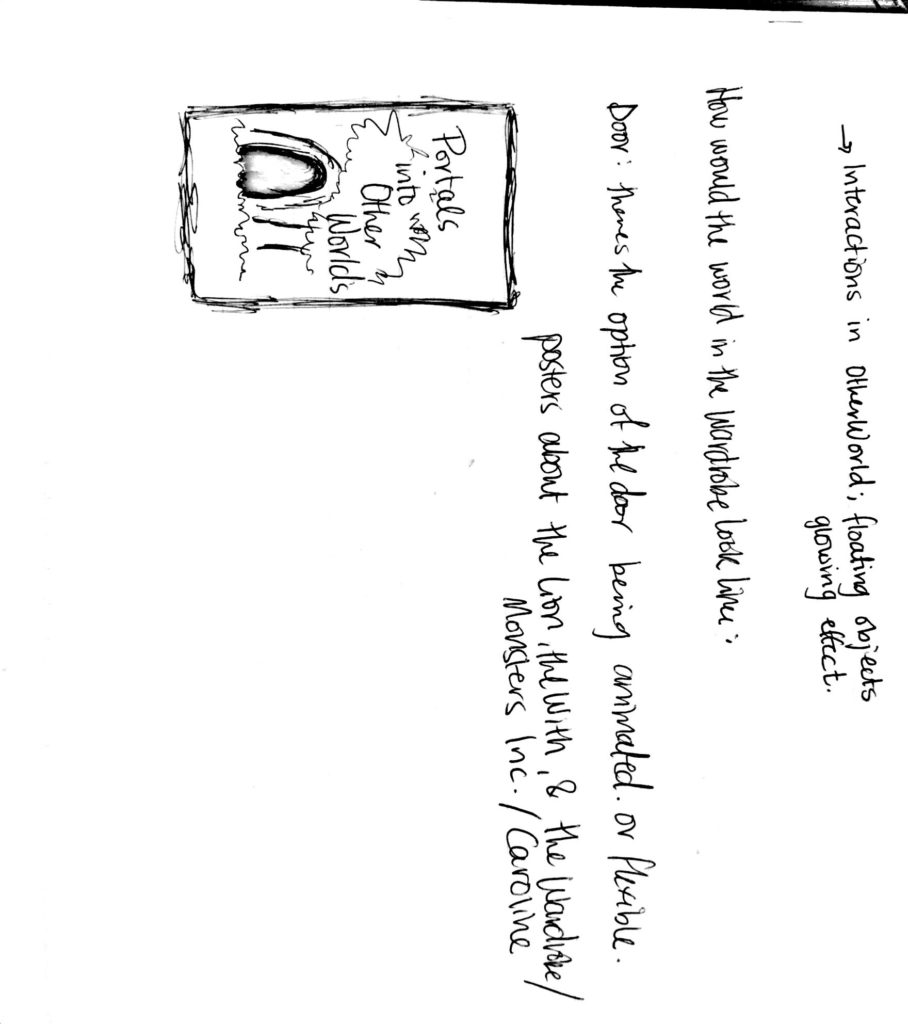 → Interactions in OtherWorld; floating objects
glowing effect.
How would the world in the Wardrobe look like:
Door: themes the option of the door being animated. or flexible.
posters about the Lion, the With, & the Wardrobe/
Monsters Inc. / Caroline
Portals
into
Other
Worlds